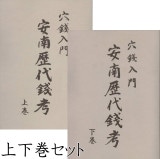 穴銭入門
安南歴代銭考
上巻
穴銭入門
安南歴代銭考
下巻
上下巻セット